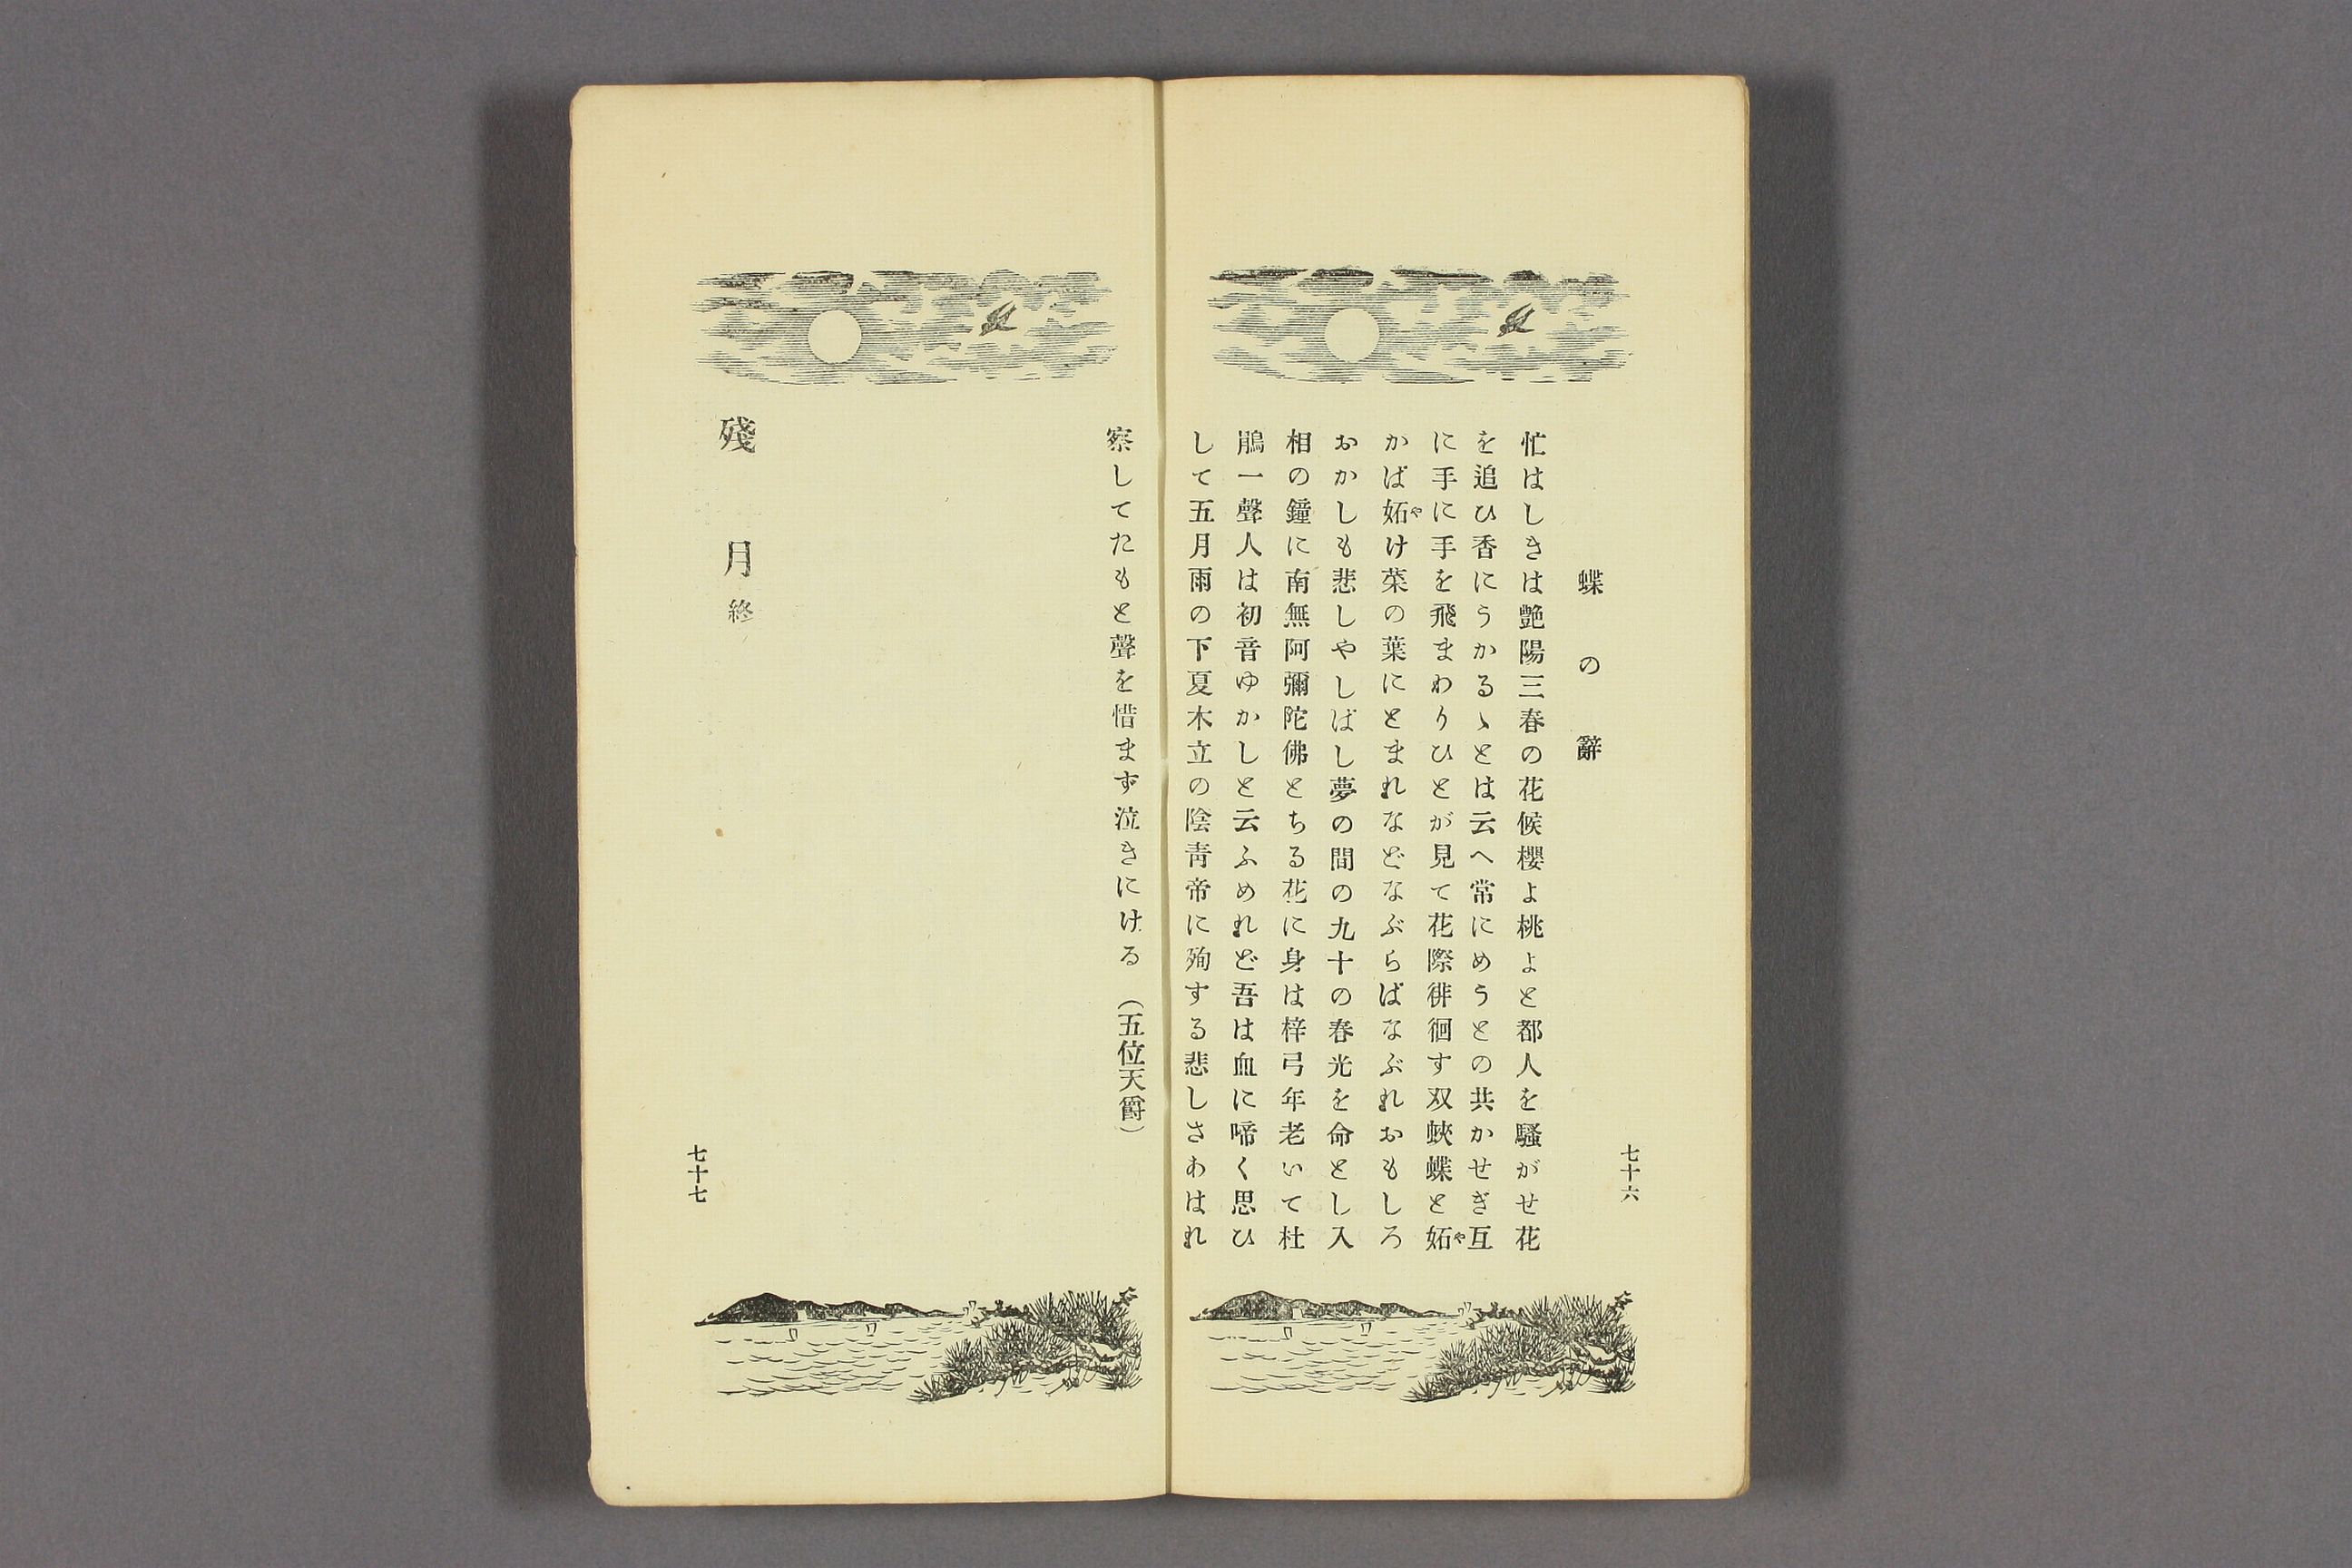 蝶の辭
忙はしきは艶陽三春の花候櫻よ桃よと都人を騷がせ花
を追ひ香にうかるゝとは云へ常にめうとの共かせぎ互
に手に手を飛まわりひとが見て花際徘徊す双蛺蝶と妬や
かば妬やけ菜の葉にとまれなどなぶらばなぶれおもしろ
おかしも悲しやしばし夢の間の九十の春光を命とし入
相の鐘に南無阿彌陀佛とちる花に身は梓弓年老いて杜
鵑一聲人は初音ゆかしと云ふめれど吾は血に啼く思ひ
して五月雨の下夏木立の陰靑帝に殉する悲しさわはれ
七十六
察してたもと聲を惜まず泣きにける （五位天爵）
殘月終
七十七